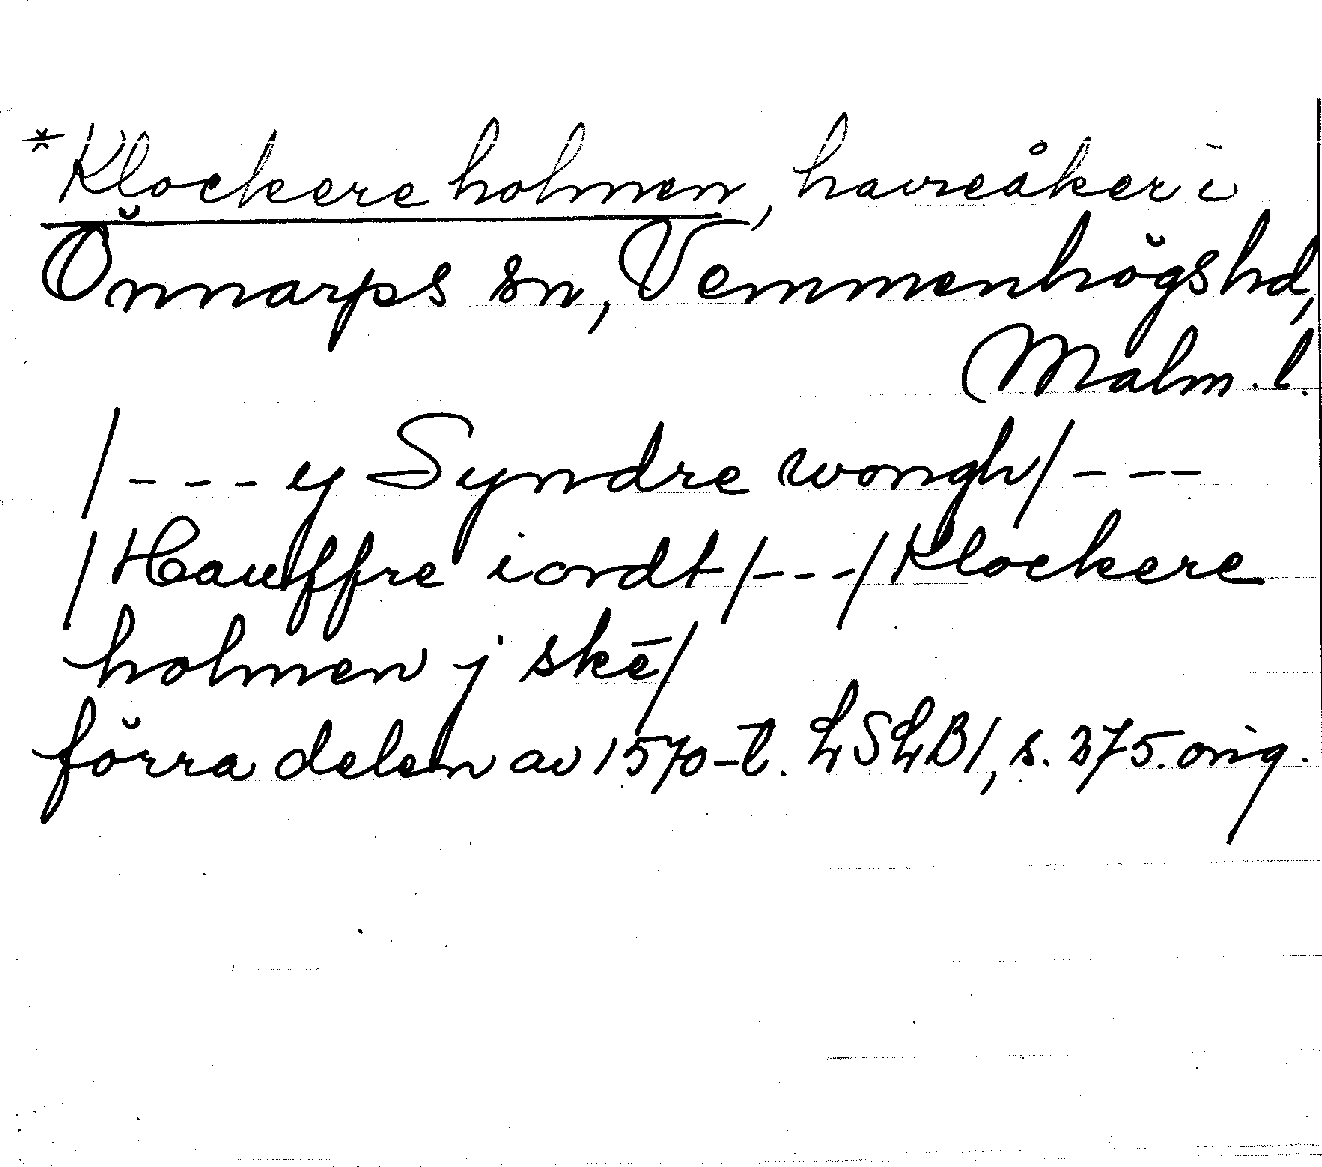 *Klockere holmen, havreåker i
Önnarps sn, Vemmenhögs hd,
Malm. l.
/---y Syndre wongh/---
/Hauffre iordt/---/Klockere
holmen j skē/
förra delen av 1570-t. LSLB1, s. 375. orig.